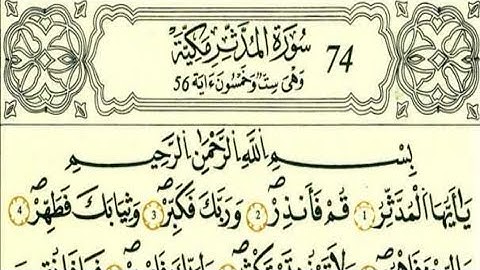 سُورَةُ الْمُدَّثِّرِ مَكِّيَّةٌ 74
وَهْيَ سِتٌّ وَخَمْسُونَ ءَايَة 56
بِسْمِ اللَّهِ الرَّحْمَٰنِ الرَّحِيمِ
يَٰأَيُّهَا الْمُدَّثِّرُ 1 قُمْ فَأَنذِرْ 2 وَرَبَّكَ فَكَبِّرْ 3 وَثِيَابَكَ فَطَهِّرْ 4